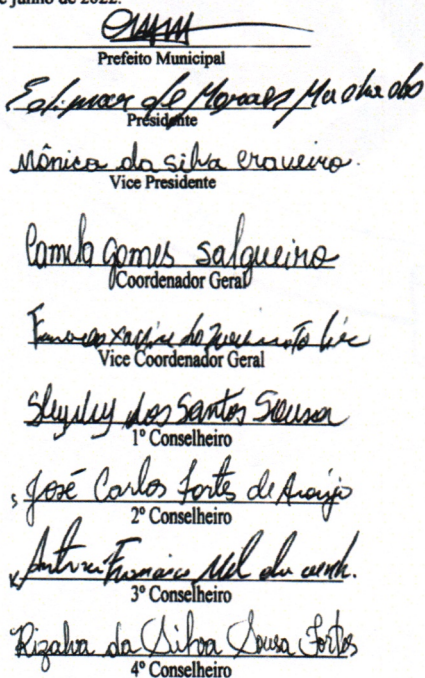 de junho de 2022.
Prefeito Municipal
Edimar de Moraes Machado
Presidente
Mônica da silva craveiro.
Vice Presidente
Camila gomes salgueiro
Coordenador Geral
Xavier do Lira
Vice Coordenador Geral
dos Santos Sousa
1º Conselheiro
José Carlos fortes de Araújo
2º Conselheiro
Antonio Francisco
3º Conselheiro
Rizalva da Silva Sousa Fortes
4º Conselheiro